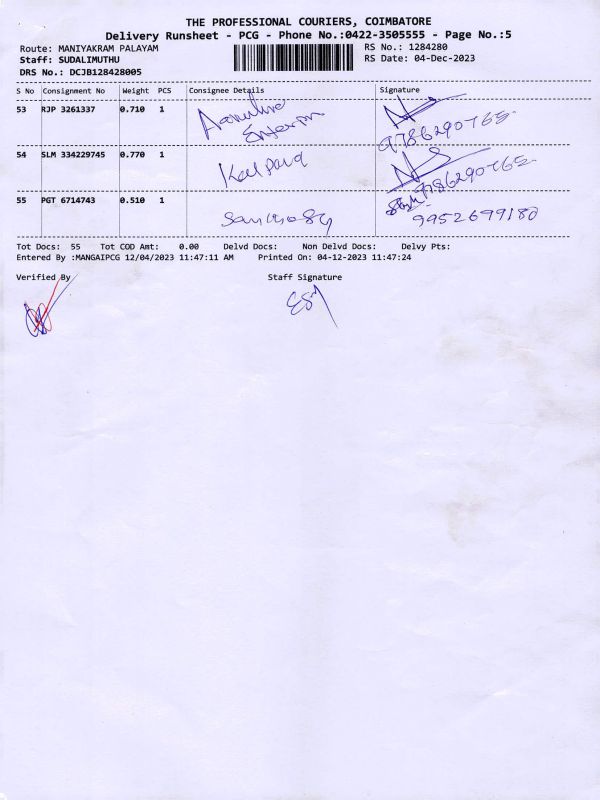 THE PROFESSIONAL COURIERS, COIMBATORE
Delivery Runsheet - PCG - Phone No.:0422-3505555 - Page No.:5
Route: MANIYAKRAM PALAYAM
RS No.: 1284280
Staff: SUDALIMUTHU
RS Date: 04-Dec-2023
DRS No.: DCJB128428005
S No Consignment No Weight PCS Consignee Details Signature
53 RJP 3261337 0.710 1
9786290765
54 SLM 334229745 0.770 1 Kalpana
9786290765
55 PGT 6714743 0.510 1
9952699180
Tot Docs: 55 Tot COD Amt: 0.00 Delvd Docs: Non Delvd Docs: Delvy Pts:
Entered By :MANGAIPCG 12/04/2023 11:47:11 AM Printed On: 04-12-2023 11:47:24
Verified By Staff Signature